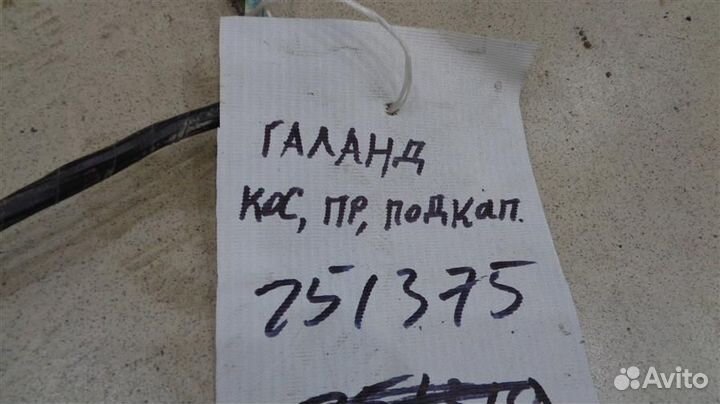 ГАЛАНД
КОС, ПР, ПОДКАП.
251375
Avito